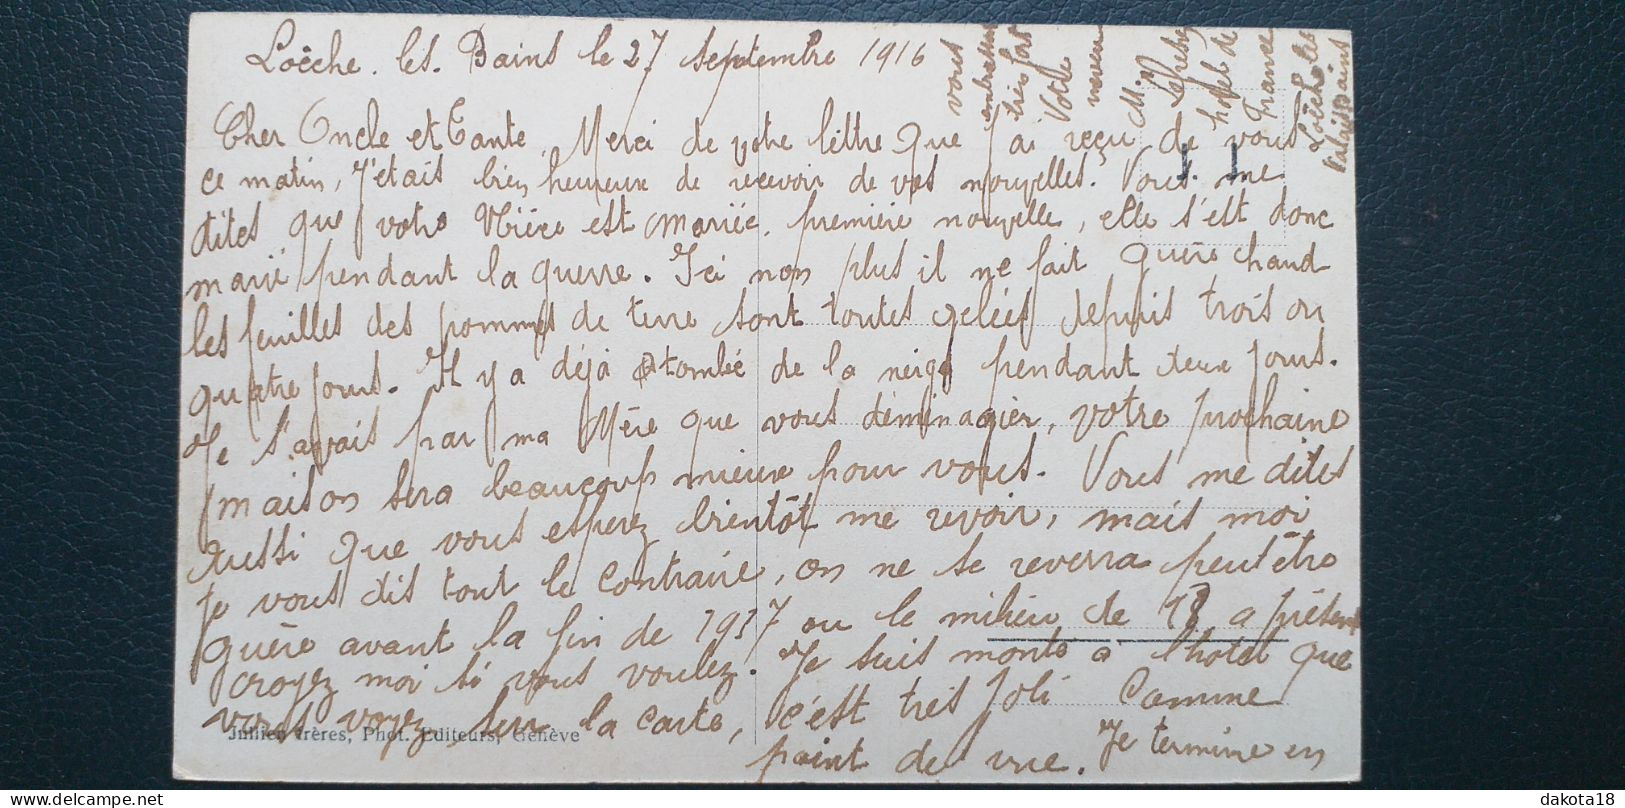 Loèche. les. Bains le 27 septembre 1916
Cher Oncle et Tante. Merci de votre lettre que j'ai reçu de vous
ce matin, j'étais bien heureux de recevoir de vos nouvelles. Vous me
dites que votre Nièce est mariée, première nouvelle, elle s'est donc
marié pendant la guerre. Ici non plus il ne fait guère chaud
les feuilles des pommes de terre sont toutes gelées depuis trois ou
quatre jours. Il y a déjà tombé de la neige pendant deux jours.
Je s'avais par ma Mère que vous déménagier, votre prochaine
maison sera beaucoup mieux pour vous. Vous me dites
aussi que vous esperez bientôt me revoir, mais moi
je vous dis tout le contraire, on ne se reverra peut être
guère avant la fin de 1917 ou le milieu de 18 a présent
croyez moi si vous voulez. Je suis monté a l'hotel que
vous voyez sur la carte, c'est très joli comme
point de vue. Je termine en
vous
embrassant
très fort
Votre
neveu
M.
hotel de
France
Loèche les
Bains
Valais
Jullien frères, Phot. Editeurs, Genève
delcampe.net
dakota18